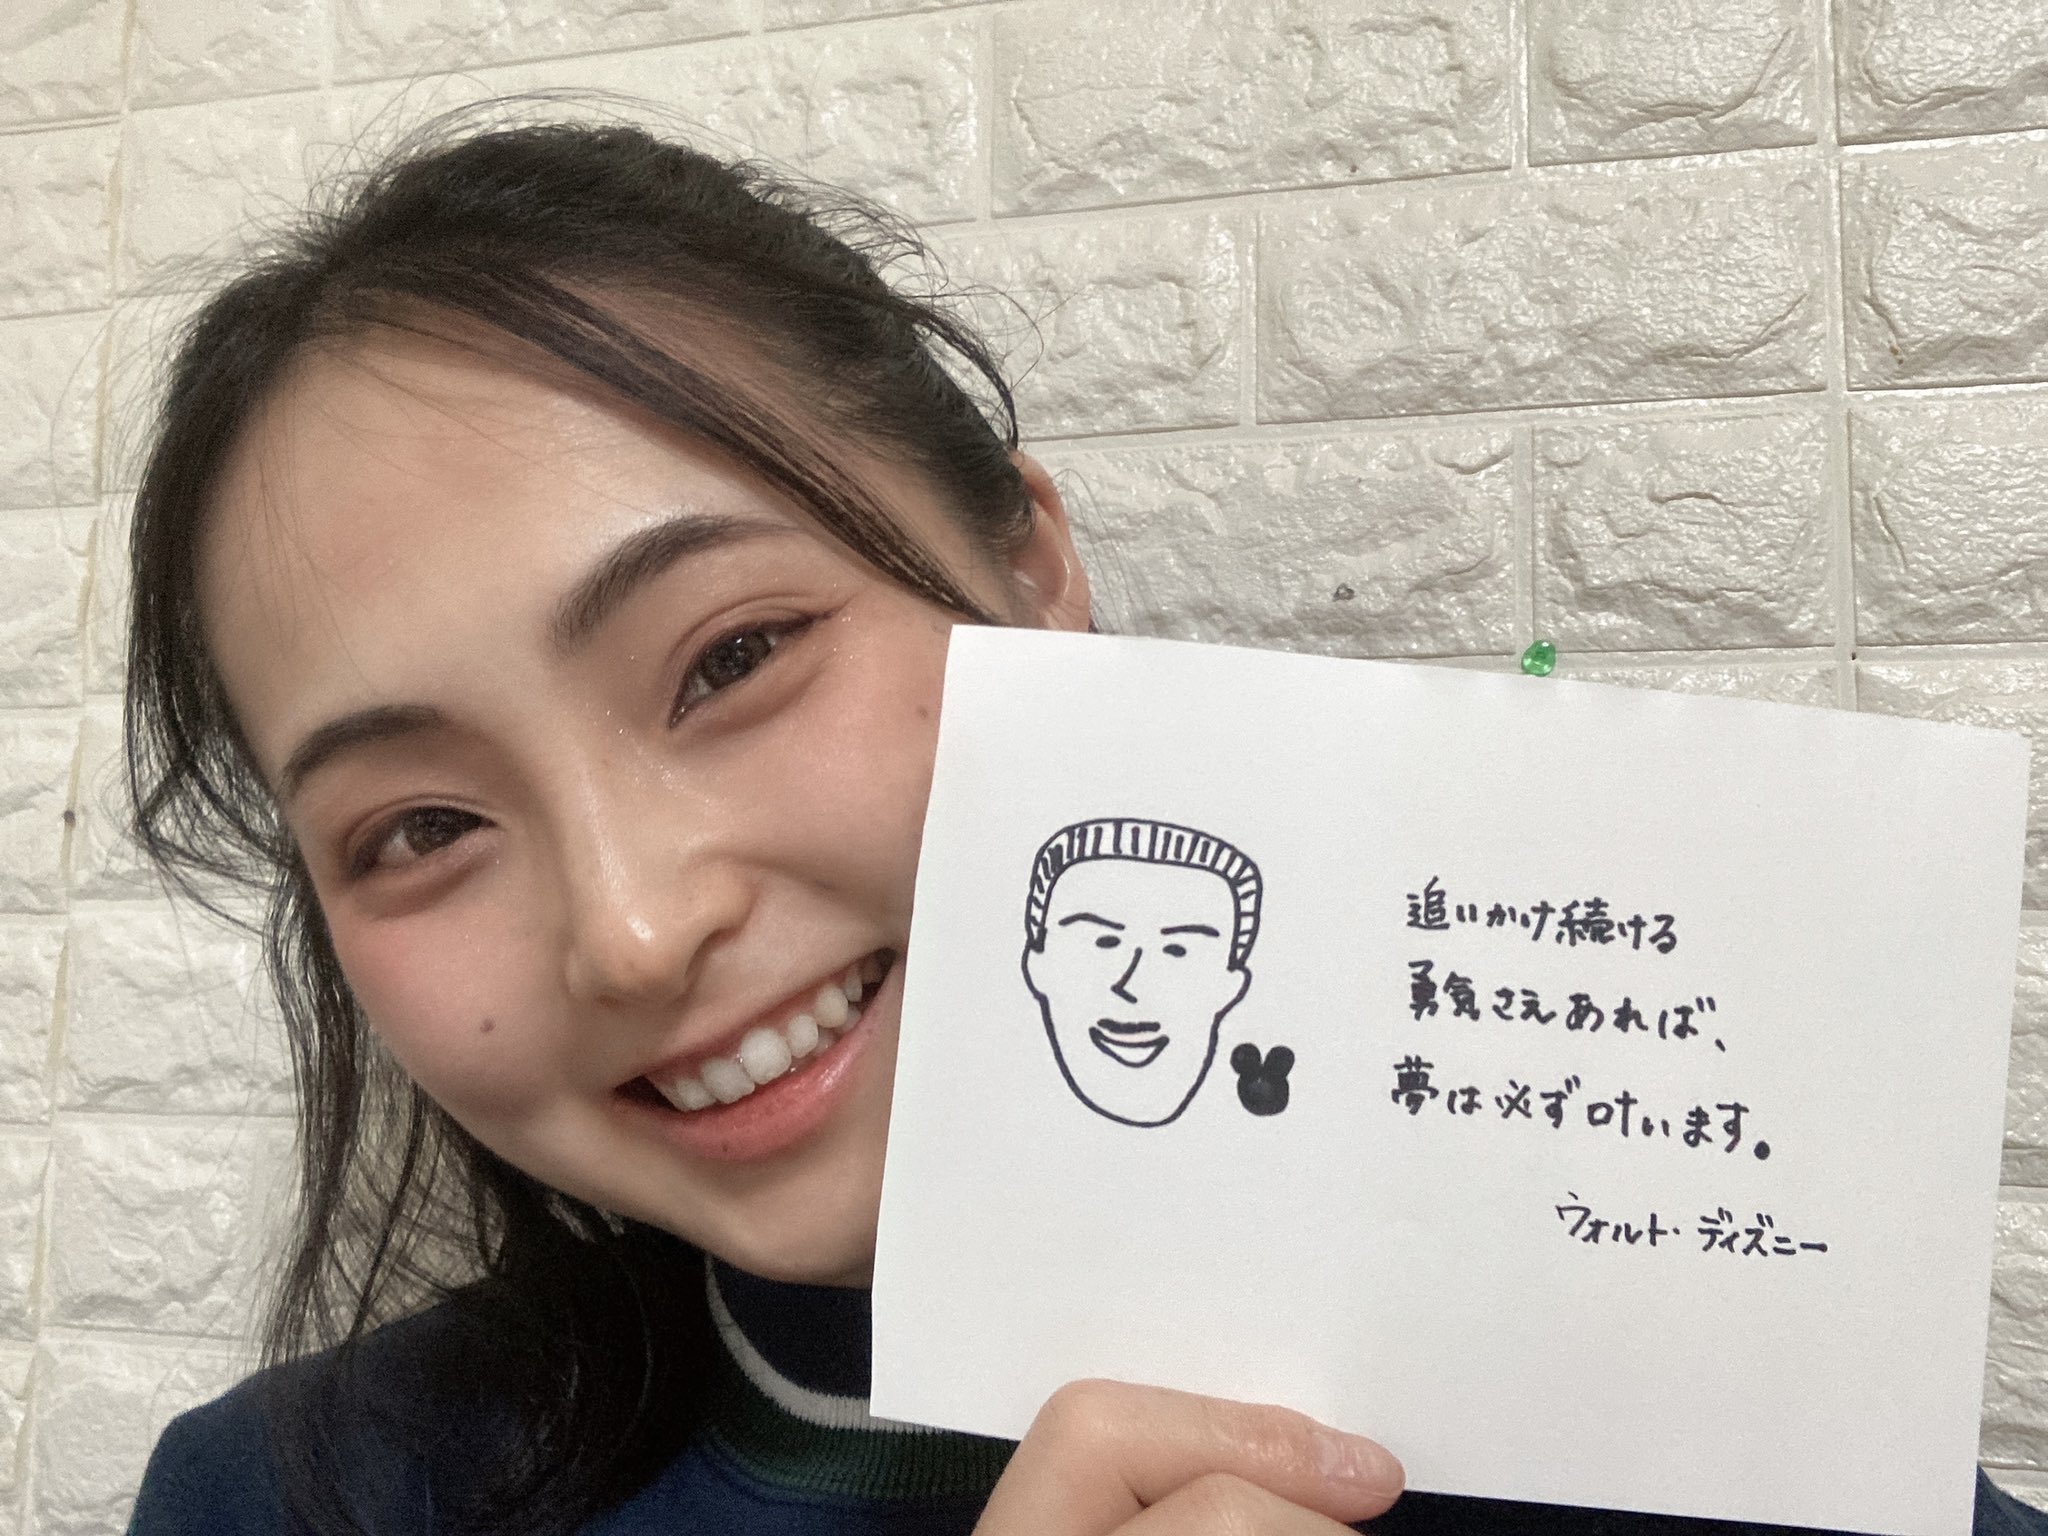 追いかけ続ける
勇気さえあれば、
夢は必ず叶います。
ウォルト・ディズニー